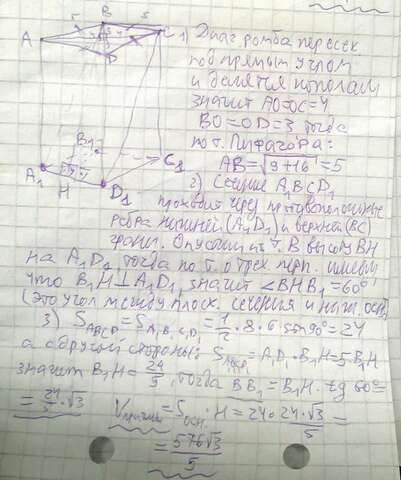 B
5
5
A
C
D
1) Диаг. ромба пересек
под прямым углом
и делятся пополам
значит AO=OC=4
BO=OD=3 тогда
по т. Пифагора:
AB=√9+16=5
B1
A1
H
D1
C1
2) Сечение A1BCD1
проходит через противоположные
ребра нижней (A1D1) и верхней (BC)
грани. Опустим из т. B высоту BH
на A1D1 тогда по т. о трех перп. имеем
что B1H⊥A1D1, значит ∠BHB1=60°
(это угол между плоск. сечения и ниж. осн.)
3) SABCD=SA1B1C1D1=1/2·8·6 sin90°=24
а с другой стороны: =A1D1·B1H=5B1H
значит B1H=24/5, тогда BB1=B1H·tg 60°=
=24/5·√3 Vпризмы=Sосн·H=24·24·√3/5=
=576√3/5